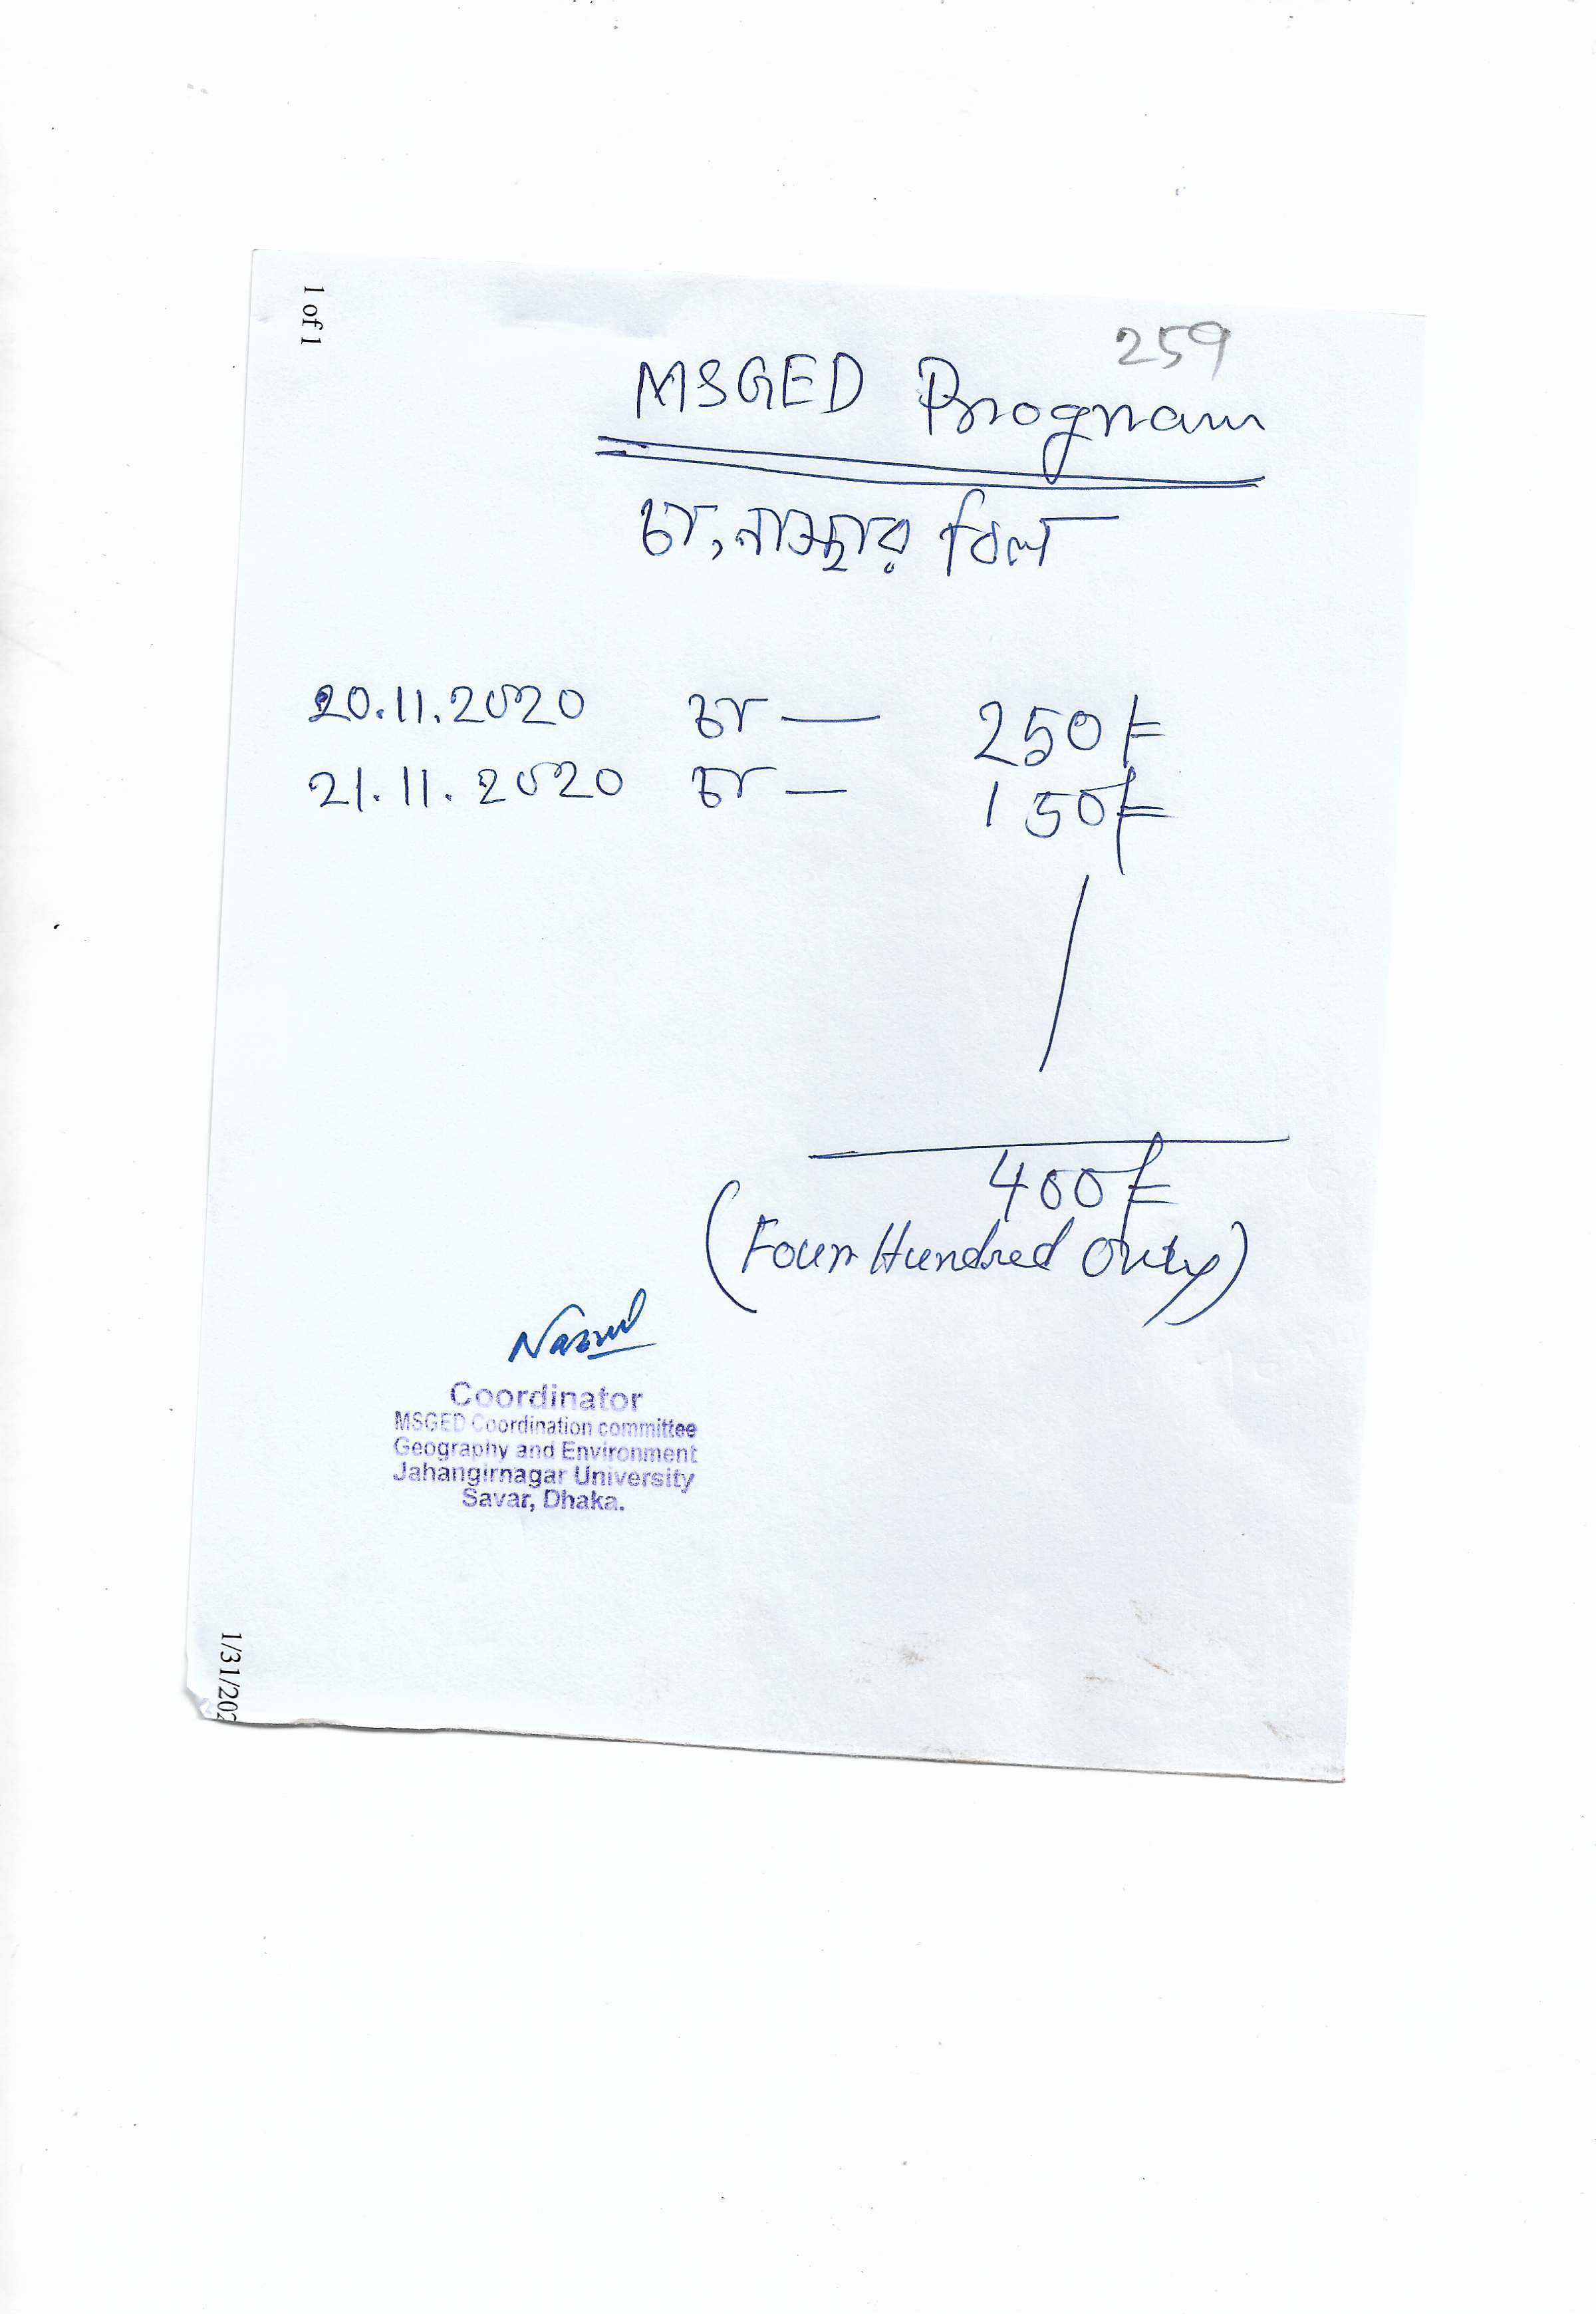 1 of 1
259
MSGED Program
চা, নাস্তার বিল
20.11.2020 চা — 250/=
21.11.2020 চা — 150/=
400/=
(Four Hundred Only)
Coordinator
MSGED Coordination committee
Geography and Environment
Jahangirnagar University
Savar, Dhaka.
1/31/202